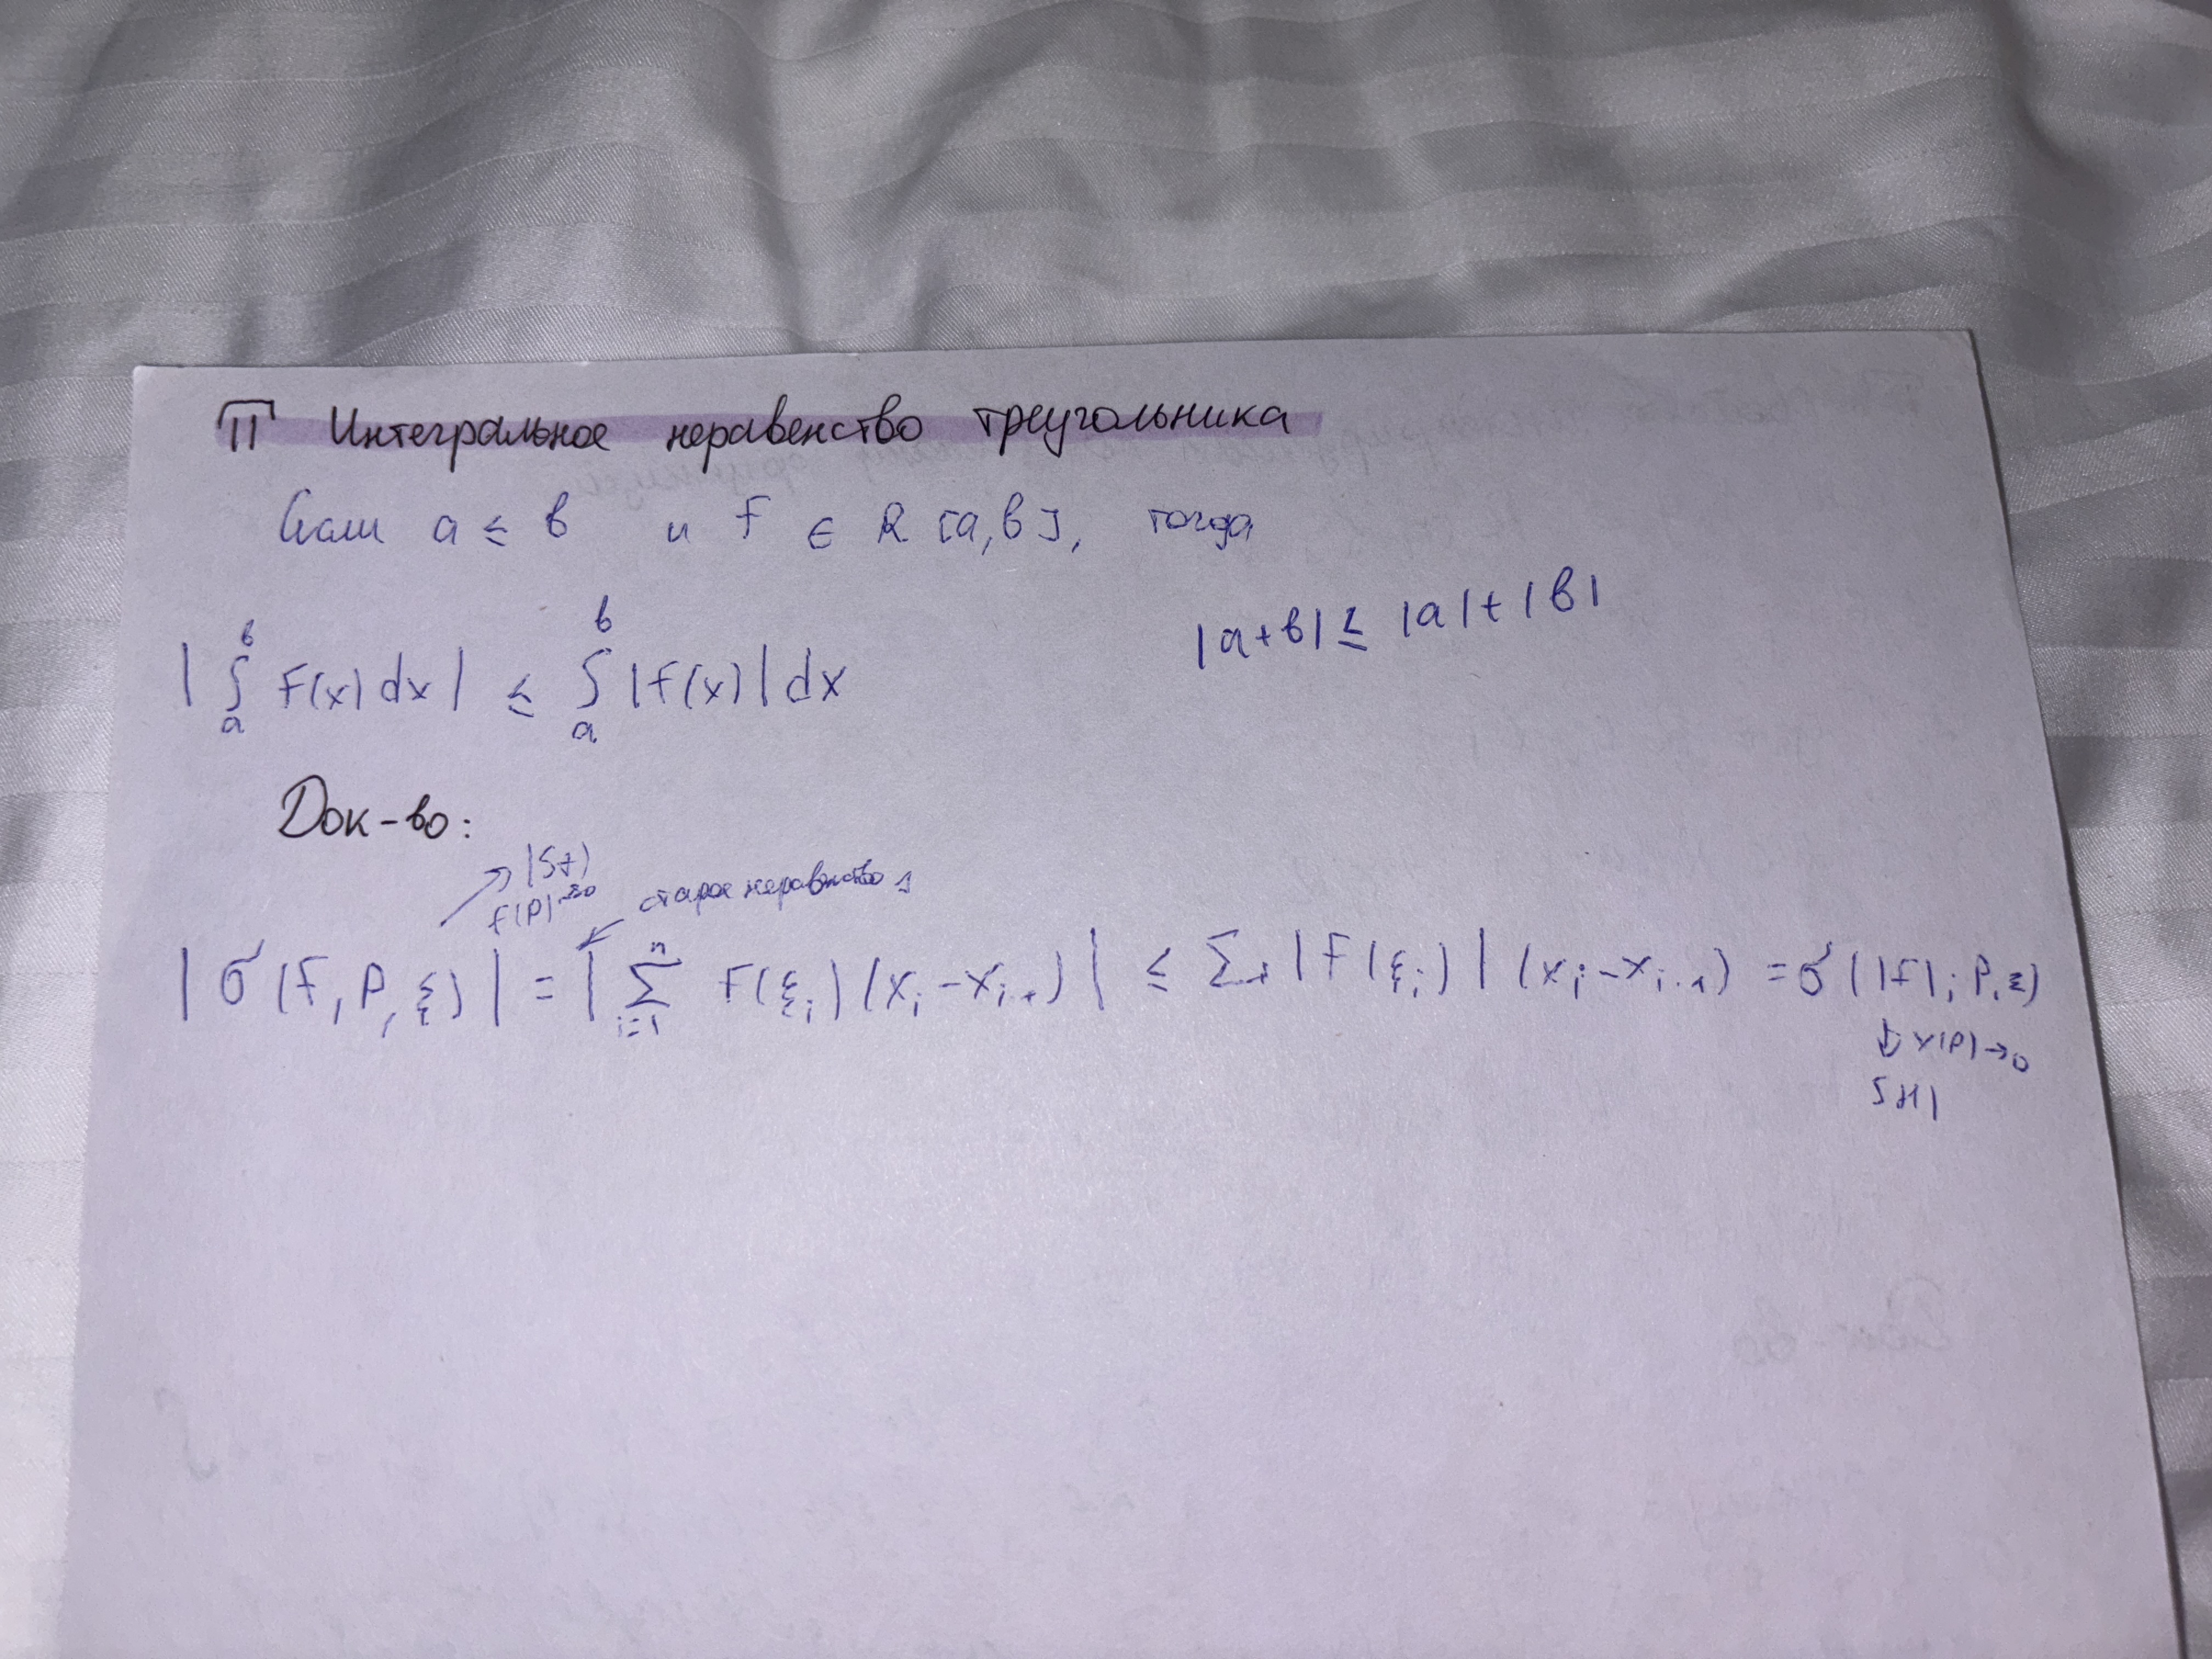 П Интегральное неравенство треугольника
Если a ≤ b и f ∈ R [a,b], тогда
|a+b| ≤ |a|+|b|
| ∫ₐᵇ f(x) dx | ≤ ∫ₐᵇ |f(x)| dx
Док-во:
↗ |∫f|
старое неравенство
| σ(f, P, ξ) | = | ∑ᵢ₌₁ⁿ f(ξᵢ) (xᵢ - xᵢ₋₁) | ≤ ∑ |f(ξᵢ)| (xᵢ - xᵢ₋₁) = σ(|f|; P, ξ)
↓ λ(P)→0
∫|f|